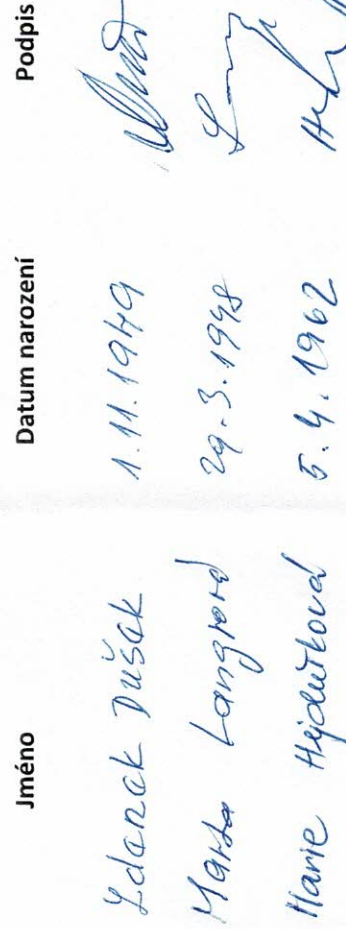 Jméno Datum narození Podpis
Zdenek Dušek 1.11.1949
Marta Langrová 29.3.1948
Marie Hejduková 5.4.1962